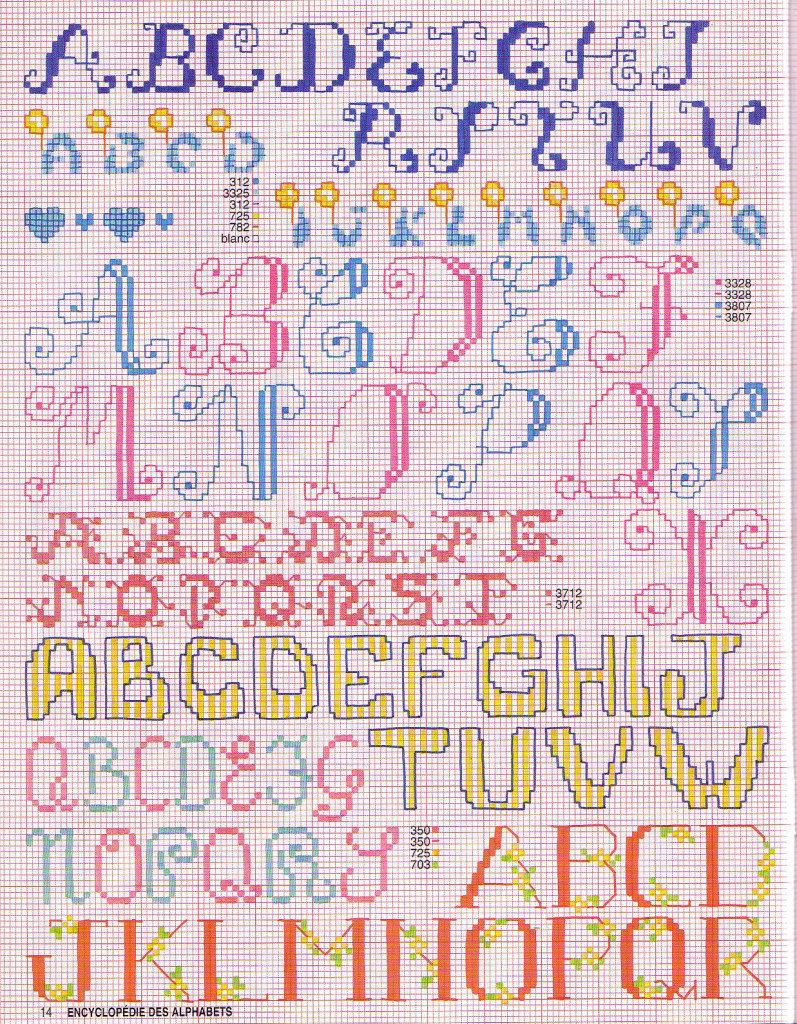 A B C D E F G H I
R S T U V
A B C D
312
3325
312
725
782
blanc
I J K L M N O P Q
A B C D E F
3328
3328
3807
3807
M N O P Q Y
A B C D E F G
X
N O P Q R S T
3712
3712
A B C D E F G H I J
A B C D E F G
T U V W
N O P Q R S
350
350
725
703
A B C D
J K L M N O P Q R
14 ENCYCLOPÉDIE DES ALPHABETS